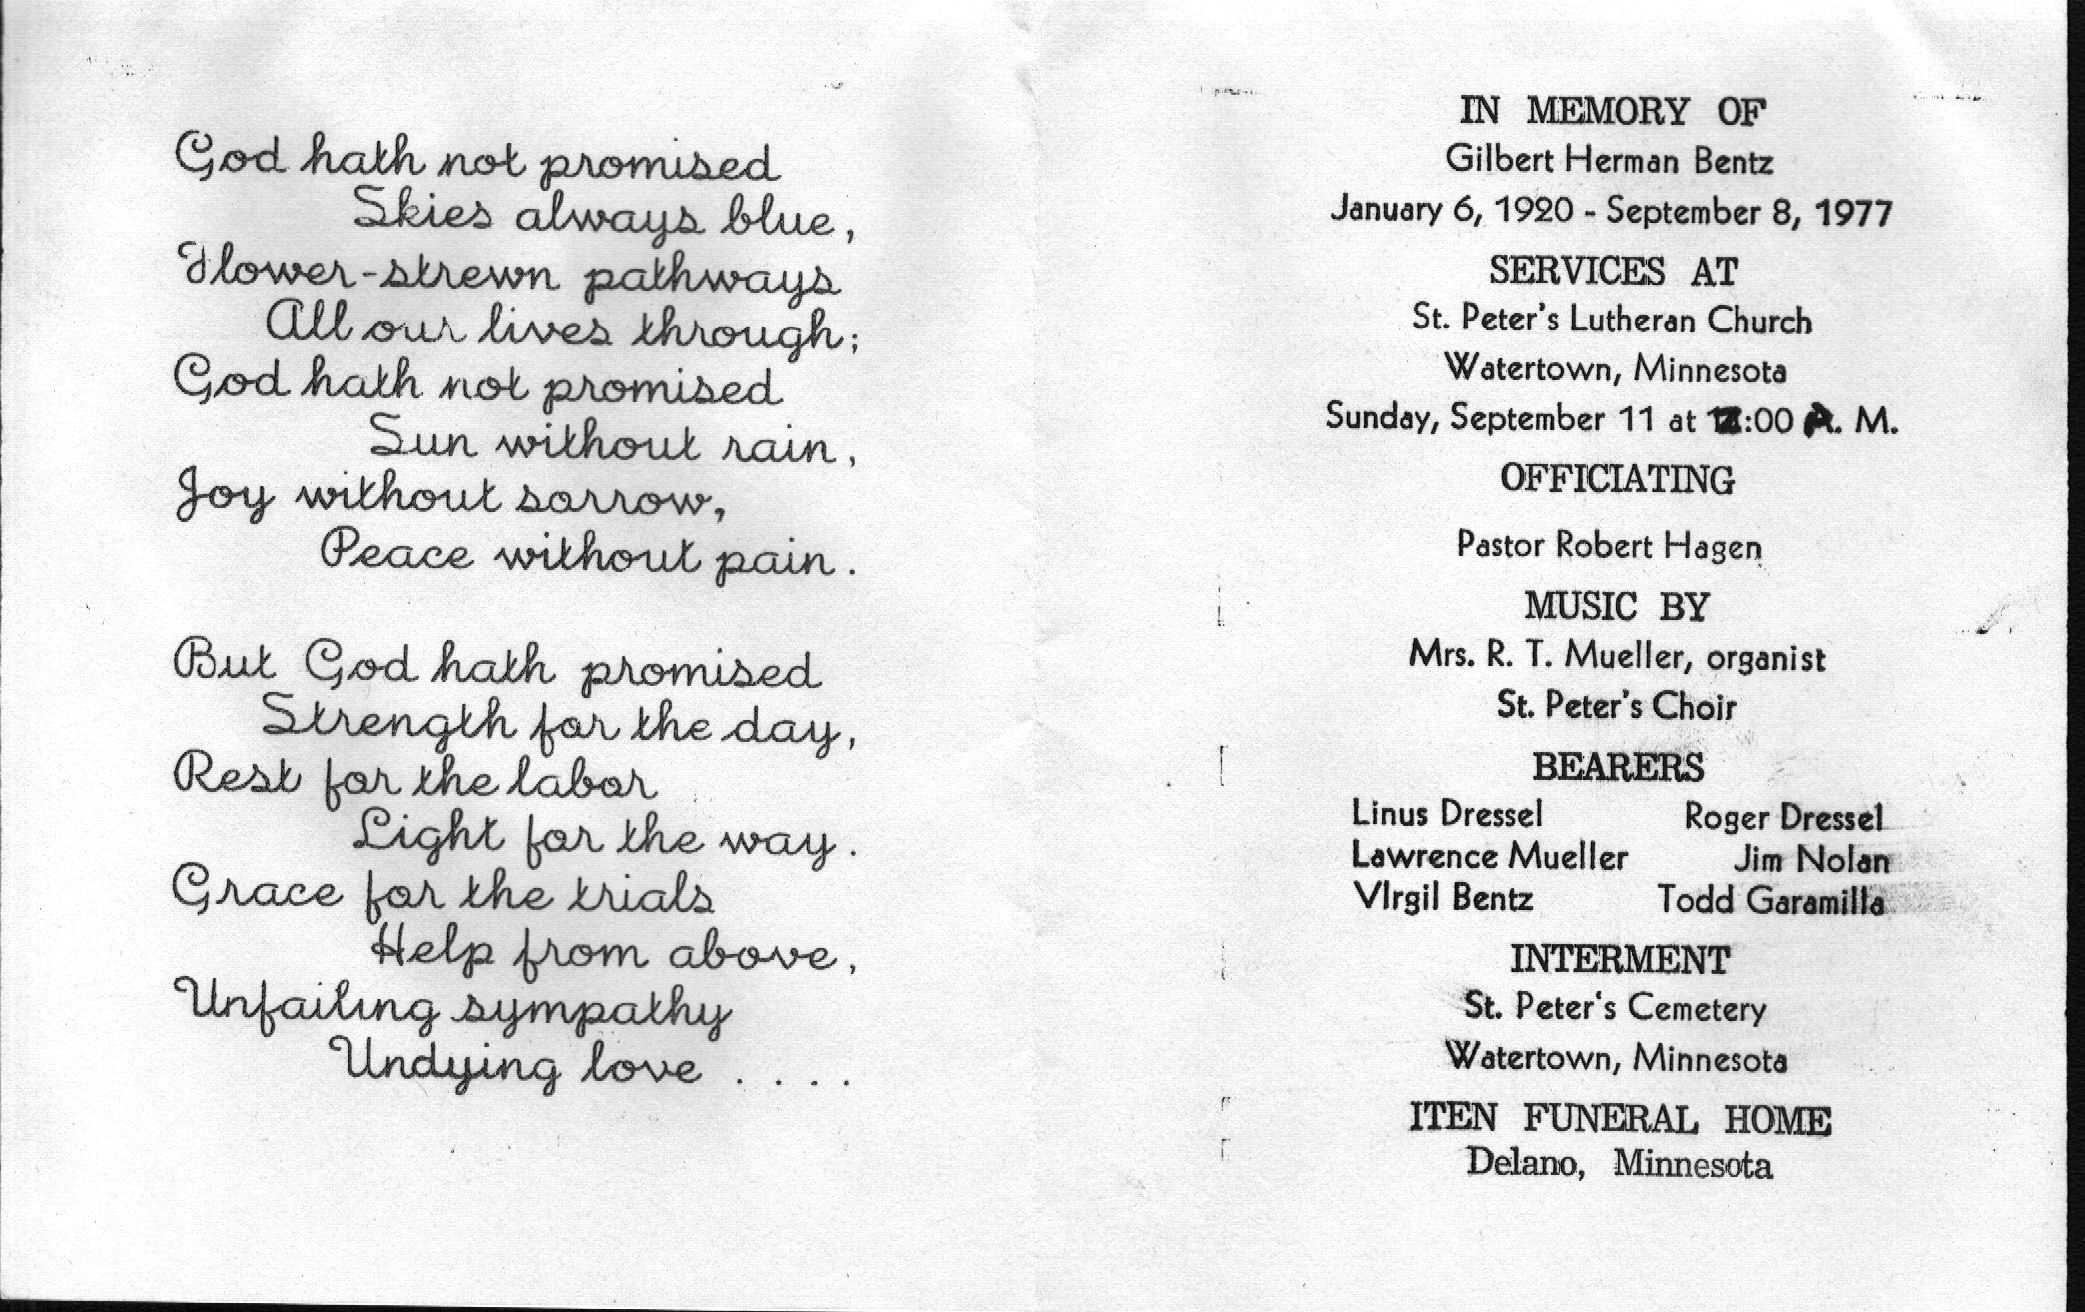 God hath not promised
Skies always blue,
Flower-strewn pathways
All our lives through;
God hath not promised
Sun without rain,
Joy without sorrow,
Peace without pain.
But God hath promised
Strength for the day,
Rest for the labor
Light for the way.
Grace for the trials
Help from above,
Unfailing sympathy
Undying love . . . .
IN MEMORY OF
Gilbert Herman Bentz
January 6, 1920 - September 8, 1977
SERVICES AT
St. Peter's Lutheran Church
Watertown, Minnesota
Sunday, September 11 at :00 A. M.
OFFICIATING
Pastor Robert Hagen
MUSIC BY
Mrs. R. T. Mueller, organist
St. Peter's Choir
BEARERS
Linus Dressel Roger Dressel
Lawrence Mueller Jim Nolan
VIrgil Bentz Todd Garamilla
INTERMENT
St. Peter's Cemetery
Watertown, Minnesota
ITEN FUNERAL HOME
Delano, Minnesota